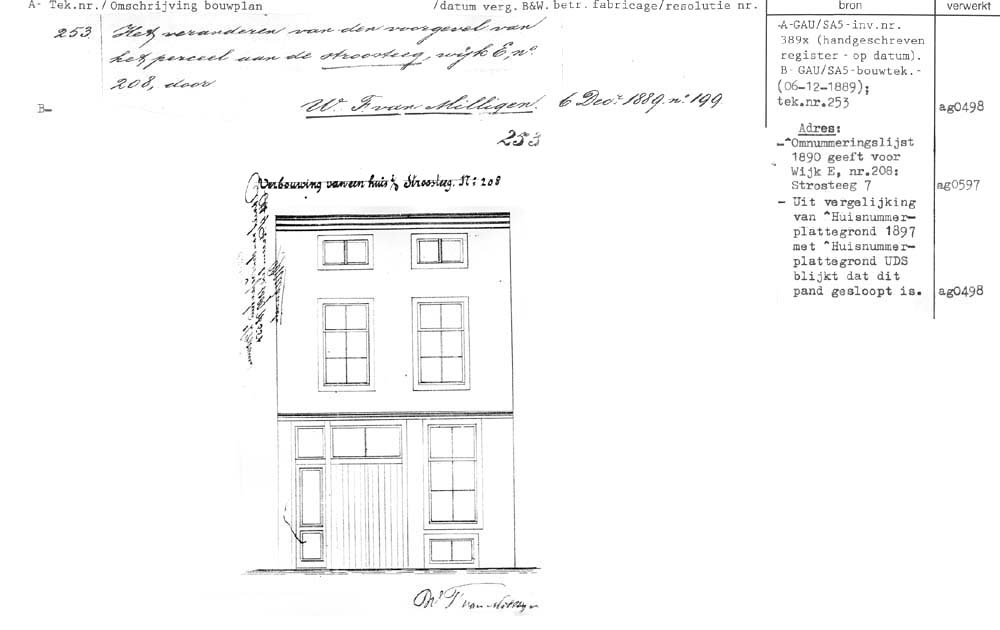 A- Tek.nr./ Omschrijving bouwplan /datum verg. B&W. betr. fabricage/resolutie nr. bron verwerkt
253 Het veranderen van den voorgevel van
het perceel aan de Stroosteeg, wijk E, no.
208, door
B- W. F. van Milligen. 6 Decr. 1889. no. 199
253
A-GAU/SA5-inv.nr.
389x (handgeschreven
register - op datum).
B- GAU/SA5-bouwtek.-
(06-12-1889);
tek.nr.253 ag0498
Adres:
-^Omnummeringslijst
1890 geeft voor
Wijk E, nr.208:
Strosteeg 7 ag0597
- Uit vergelijking
van ^Huisnummer-
plattegrond 1897
met ^Huisnummer-
plattegrond UDS
blijkt dat dit
pand gesloopt is. ag0498
Verbouwing van een huis Stroosteeg. No: 208